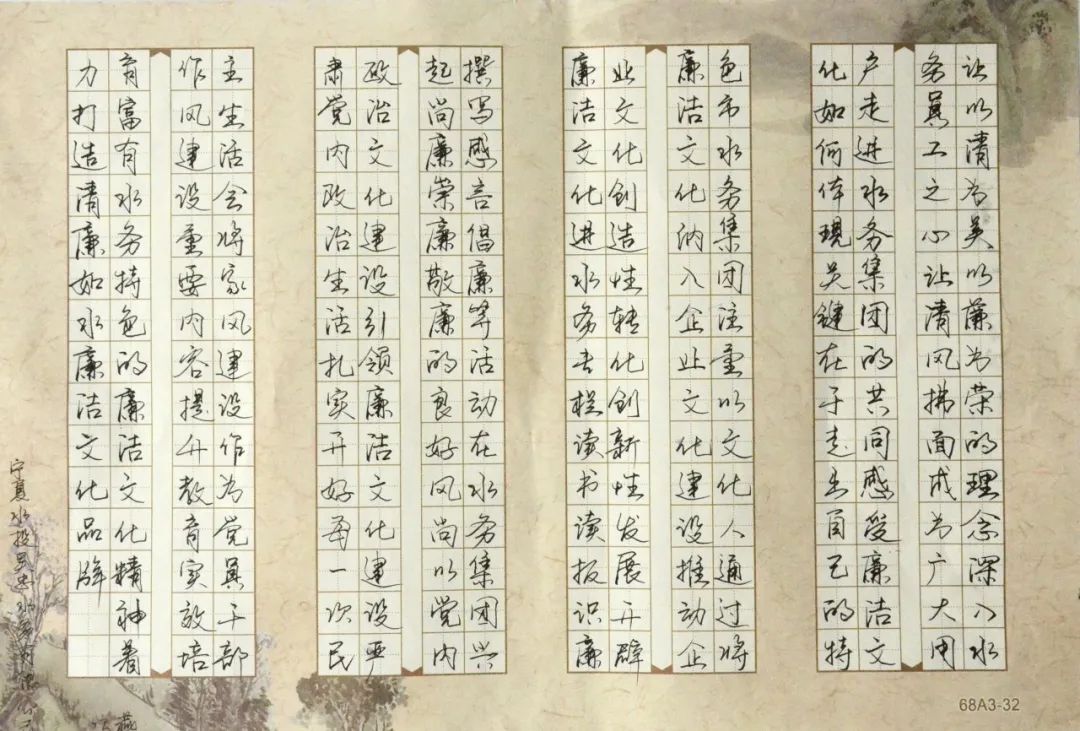 让以清为美以廉为荣的理念深入水
务员工之心让清风拂面成为广大用
户走进水务集团的共同感受廉洁文
化如何体現关键在于走出自己的特
色市水务集团注重以文化人通过将
廉洁文化纳入企业文化建设推动企
业文化创造性转化创新性发展开辟
廉洁文化进水务专栏读书读报识廉
撰写感言倡廉等活动在水务集团兴
起尚廉崇廉敬廉的良好风尚以党内
政治文化建设引领廉洁文化建设严
肃党内政治生活扎实开好每一次民
主生活会将家风建设作为党员干部
作风建设重要内容提升教育实效培
育富有水务特色的廉洁文化精神着
力打造清廉如水廉洁文化品牌
宁夏水投吴忠水务有限公司
燕
68A3-32